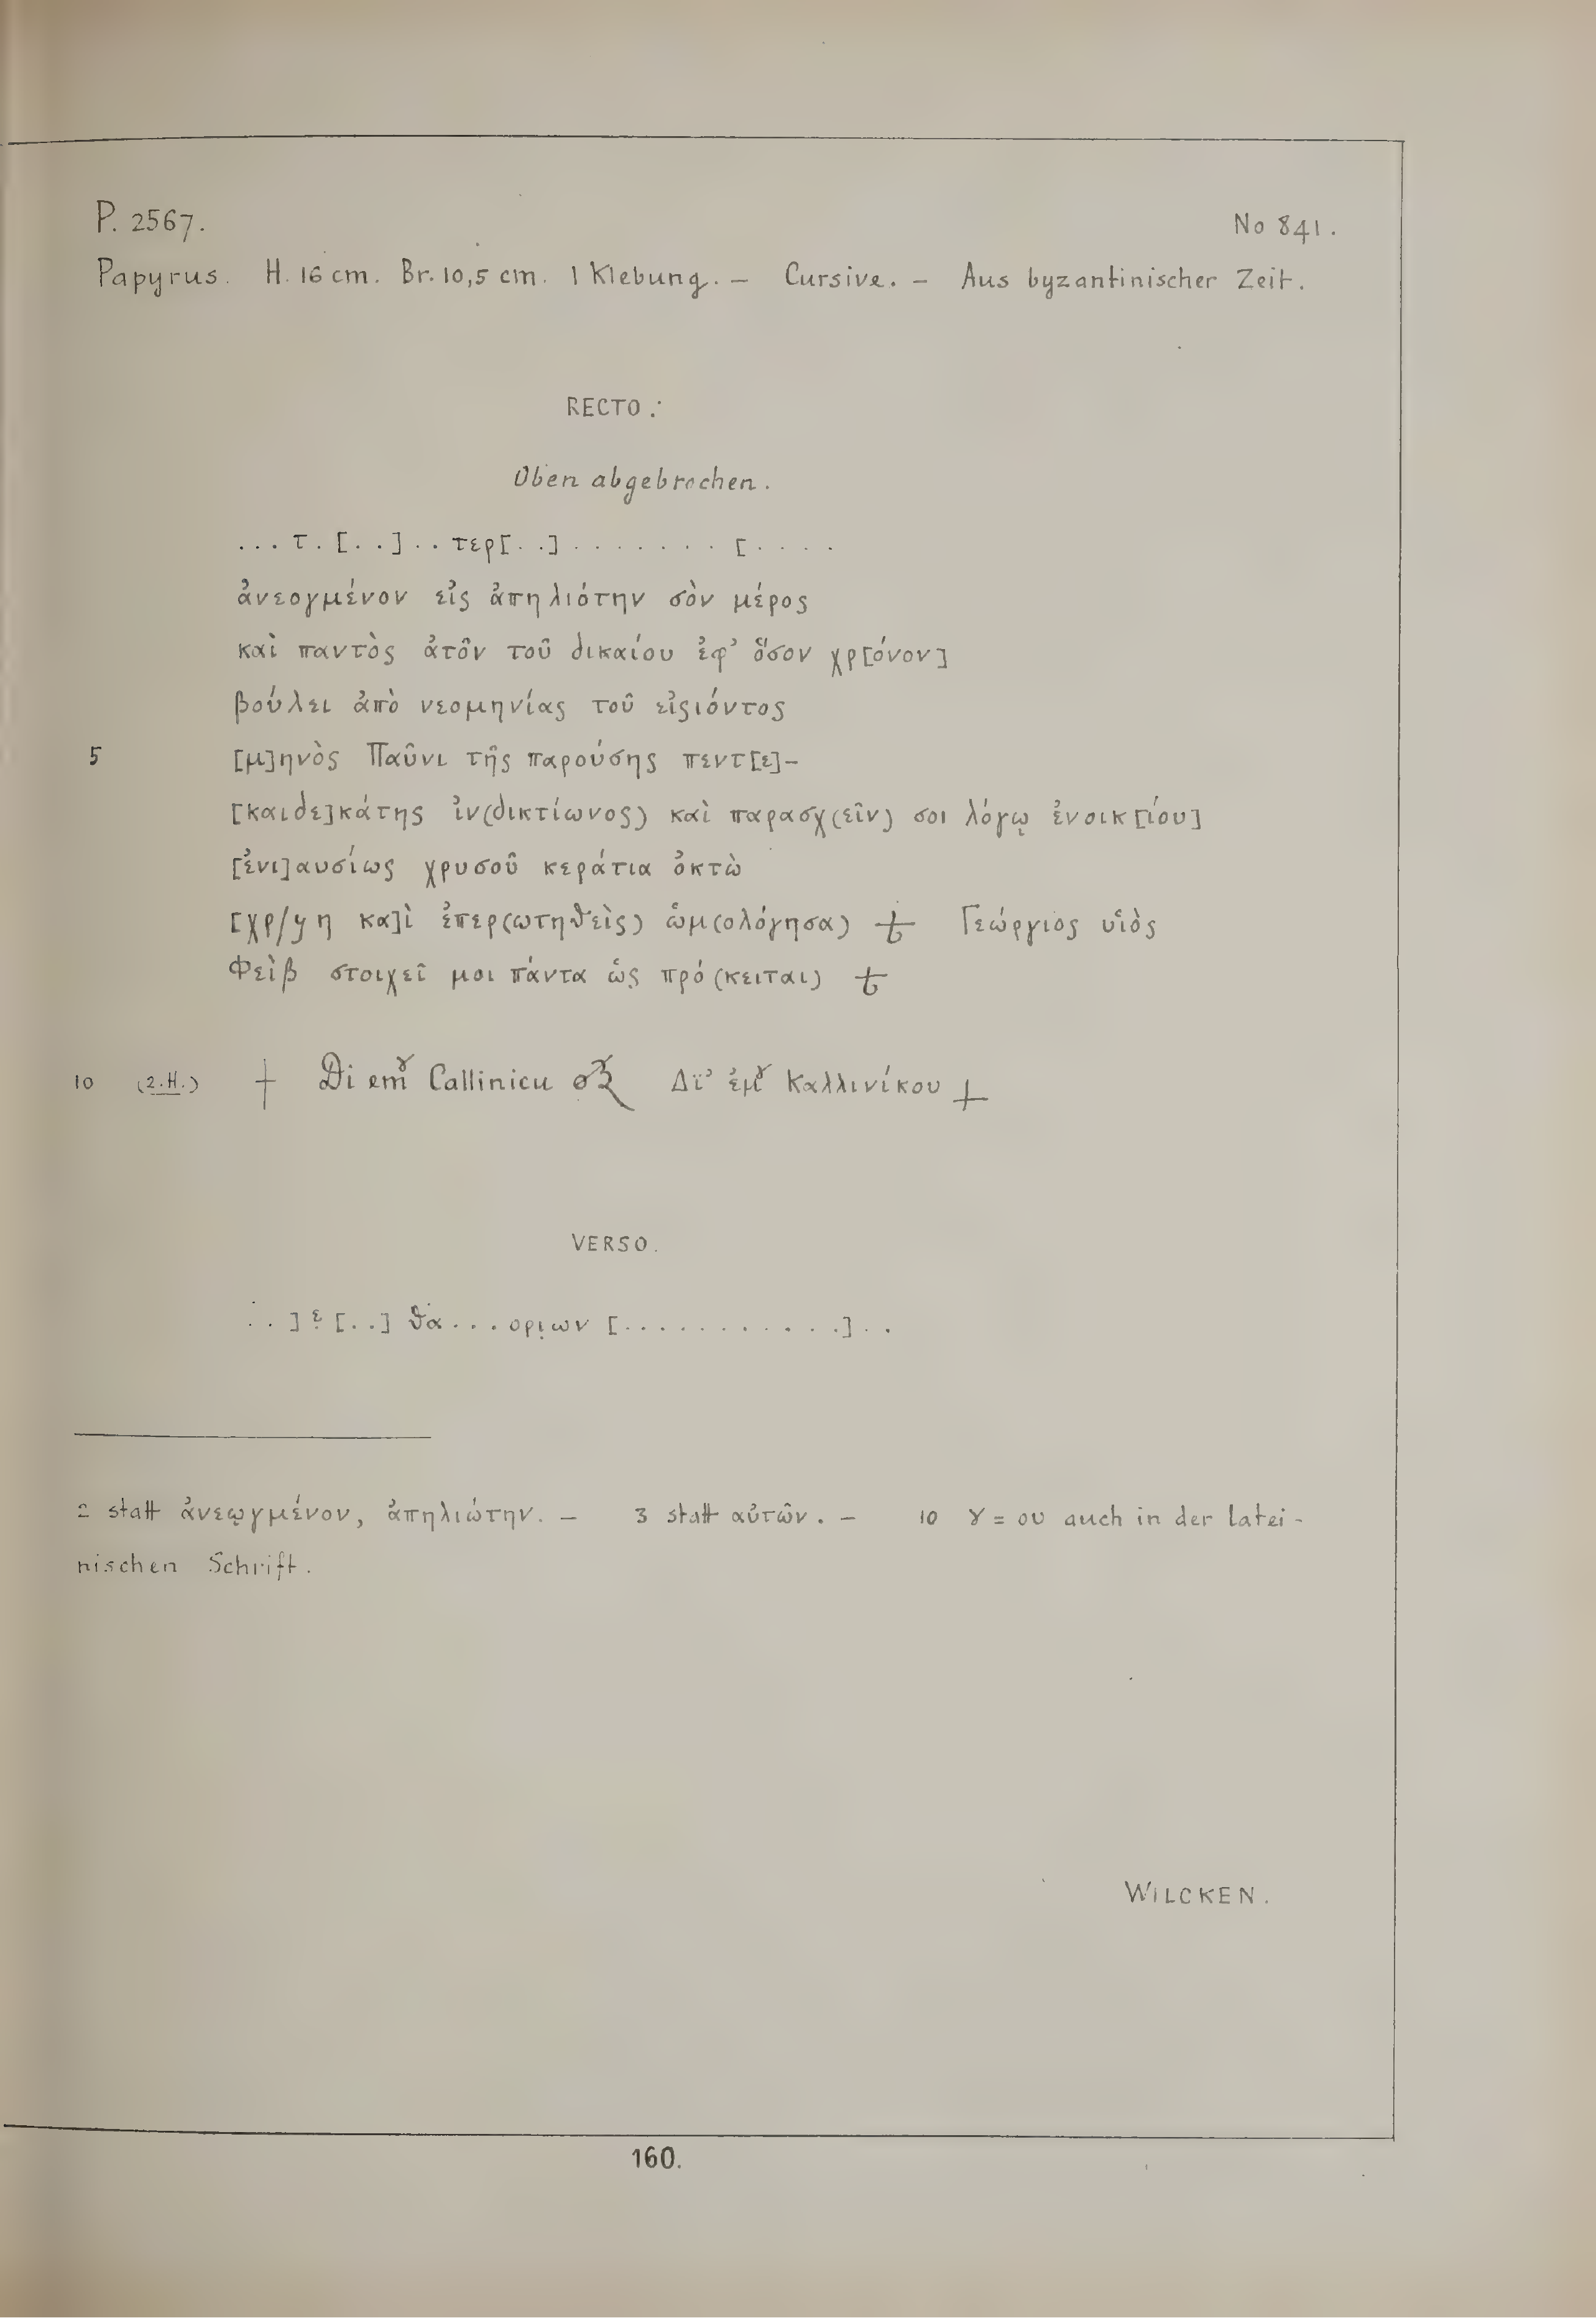 P. 2567. No 841.
Papyrus. H. 16 cm. Br. 10,5 cm. 1 Klebung. – Cursive. – Aus byzantinischer Zeit.
RECTO:
Oben abgebrochen.
... τ. [..] .. τερ[..] ....... [....
ἀνεογμένον εἰς ἀπηλιότην σὸν μέρος
καὶ παντὸς ἀτôν τοῦ δικαίου ἐφ' ὅσον χρ[όνον]
βούλει ἀπὸ νεομηνίας τοῦ εἰςιόντος
5 [μ]ηνὸς Παῦνι τῆς παρούσης πεντ[ε]-
[καιδε]κάτης ἰν(δικτίωνος) καὶ παρασχ(εῖν) σοι λόγῳ ἐνοικ[ίου]
[ἐνι]αυσίως χρυσοῦ κεράτια ὀκτὼ
[χρ/ η κα]ὶ ἐπερ(ωτηθεὶς) ὡμ(ολόγησα) ⳨ Γεώργιος υἱὸς
Φεὶβ στοιχεῖ μοι πάντα ὡς πρό(κειται) ⳨
10 (2.H.) † Di emȣ Callinicu Δϊ' ἐμȣ Καλλινίκου †
VERSO.
. . ] ε [..] θα ... οριων [...........] . .
2 statt ἀνεῳγμένον, ἀπηλιώτην. – 3 statt αὐτῶν. – 10 ȣ = ου auch in der latei-
nischen Schrift.
WILCKEN.
160.